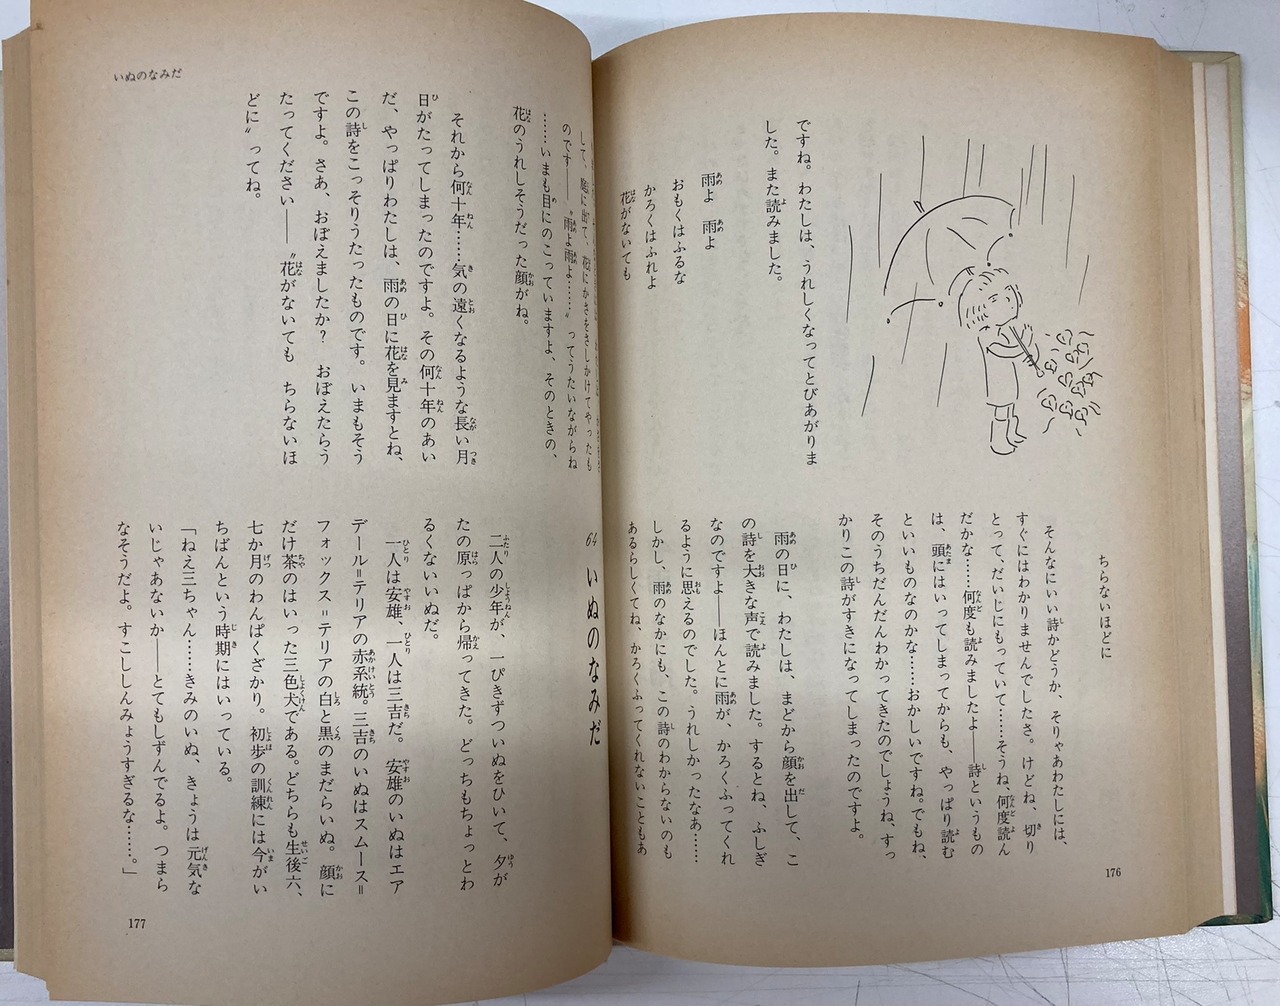 ですね。わたしは、うれしくなってとびあがりま
した。また読みました。
雨よ　雨よ
おもくはふるな
かろくはふれよ
花がないても
ちらないほどに
そんなにいい詩かどうか、そりゃあわたしには、
すぐにはわかりませんでしたさ。けどね、切り
とって、だいじにもっていて……そうね、何度読ん
だかな……何度も読みましたよ――詩というもの
は、頭にはいってしまってからも、やっぱり読む
といいものなのかな……おかしいですね。でもね、
そのうちだんだんわかってきたのでしょうね、すっ
かりこの詩がすきになってしまったのですよ。
雨の日に、わたしは、まどから顔を出して、こ
の詩を大きな声で読みました。するとね、ふしぎ
なのですよ――ほんとに雨が、かろくふってくれ
るように思えるのでした。うれしかったなあ……
しかし、雨のなかにも、この詩のわからないのも
あるらしくてね、かろくふってくれないこともあ
176
いぬのなみだ
して、庭に出て、花にかさをさしかけてやったも
のです――〝雨よ雨よ……〟ってうたいながらね
……いまも目にのこっていますよ、そのときの、
花のうれしそうだった顔がね。
それから何十年……気の遠くなるような長い月
日がたってしまったのですよ。その何十年のあい
だ、やっぱりわたしは、雨の日に花を見ますとね、
この詩をこっそりうたったものです。いまもそう
ですよ。さあ、おぼえましたか？　おぼえたらう
たってください――〝花がないても　ちらないほ
どに〟ってね。
64　いぬのなみだ
二人の少年が、一ぴきずついぬをひいて、夕が
たの原っぱから帰ってきた。どっちもちょっとわ
るくないいぬだ。
一人は安雄、一人は三吉だ。安雄のいぬはエア
デール＝テリアの赤系統。三吉のいぬはスムース＝
フォックス＝テリアの白と黒のまだらいぬ。顔に
だけ茶のはいった三色犬である。どちらも生後六、
七か月のわんぱくざかり。初歩の訓練には今がい
ちばんという時期にはいっている。
「ねえ三ちゃん……きみのいぬ、きょうは元気な
いじゃあないか――とてもしずんでるよ。つまら
なそうだよ。すこししんみょうすぎるな……。」
177